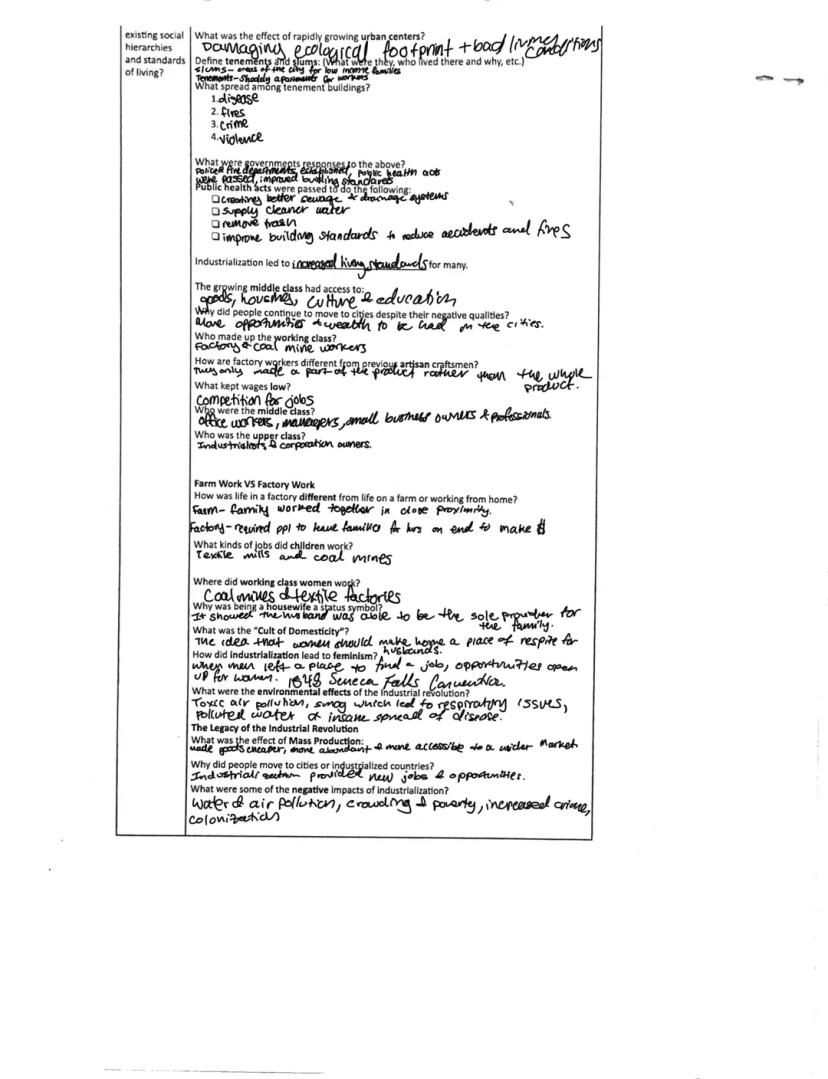 existing social
hierarchies
and standards
of living?
What was the effect of rapidly growing urban centers?
Damaging ecological footprint + bad living conditions
Define tenements and slums: (What were they, who lived there and why, etc.)
slums- areas of the city for low income families
Tenements- Shoddy apartments for workers
What spread among tenement buildings?
1. disease
2. fires
3. crime
4. violence
What were governments responses to the above?
police & fire departments established, public health acts
were passed, improved building standards
Public health acts were passed to do the following:
☐ creating better sewage & drainage systems
☐ supply cleaner water
☐ remove trash
☐ improve building standards to reduce accidents and fires
Industrialization led to increased living standards for many.
The growing middle class had access to:
goods, housing, culture & education
Why did people continue to move to cities despite their negative qualities?
More opportunities & wealth to be had in the cities.
Who made up the working class?
Factory & coal mine workers
How are factory workers different from previous artisan craftsmen?
They only made a part of the product rather than the whole
product.
What kept wages low?
Competition for jobs
Who were the middle class?
office workers, managers, small business owners & professionals.
Who was the upper class?
Industrialists & corporation owners.
Farm Work VS Factory Work
How was life in a factory different from life on a farm or working from home?
Farm- family worked together in close proximity.
Factory- required ppl to leave families for hrs on end to make $
What kinds of jobs did children work?
Textile mills and coal mines
Where did working class women work?
Coal mines & textile factories
Why was being a housewife a status symbol?
It showed the husband was able to be the sole provider for
the family.
What was the "Cult of Domesticity"?
The idea that women should make home a place of respite for
husbands.
How did industrialization lead to feminism?
when men left a place to find a job, opportunities open
up for women. 1848 Seneca Falls Convention.
What were the environmental effects of the industrial revolution?
Toxic air pollution, smog which led to respiratory issues,
polluted water & insane spread of disease.
The Legacy of the Industrial Revolution
What was the effect of Mass Production:
made goods cheaper, more abundant & more accessible to a wider market
Why did people move to cities or industrialized countries?
Industrialization provided new jobs & opportunities.
What were some of the negative impacts of industrialization?
Water & air pollution, crowding & poverty, increased crime,
colonization